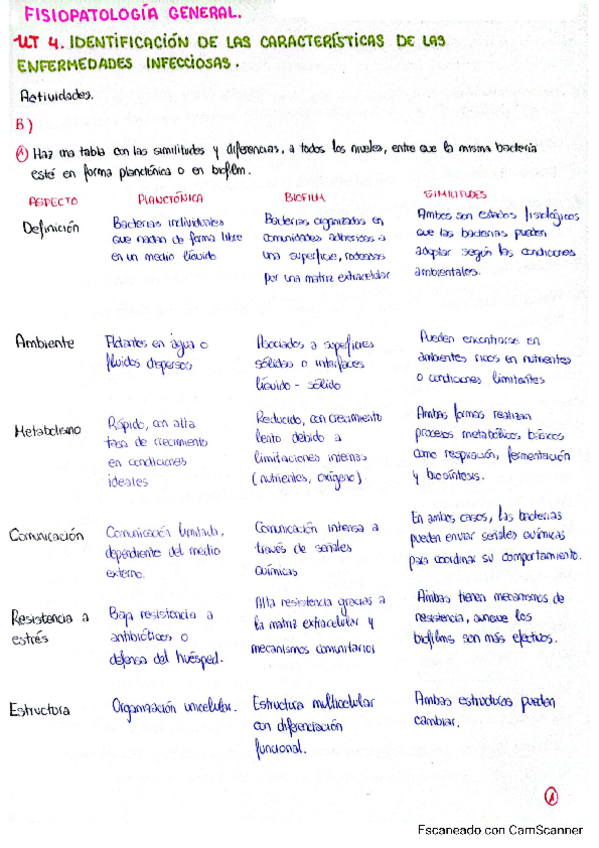 FISIOPATOLOGÍA GENERAL.
UT 4. IDENTIFICACIÓN DE LAS CARACTERÍSTICAS DE LAS
ENFERMEDADES INFECCIOSAS.
Actividades.
B)
A Haz una tabla con las similitudes y diferencias, a todos los niveles, entre que la misma bacteria
esté en forma planctónica o en biofilm.
ASPECTO PLANCTÓNICA BIOFILM SIMILITUDES
Definición
Bacterias individuales
que nadan de forma libre
en un medio líquido
Bacterias organizadas en
comunidades adheridas a
una superficie, rodeadas
por una matriz extracelular
Ambos son estados fisiológicos
que las bacterias pueden
adoptar según las condiciones
ambientales.
Ambiente
Flotantes en agua o
fluidos dispersos
Asociados a superficies
sólidas o interfaces
líquido - sólido
Pueden encontrarse en
ambientes ricos en nutrientes
o condiciones limitantes
Metabolismo
Rápido, con alta
tasa de crecimiento
en condiciones
ideales
Reducido, con crecimiento
lento debido a
limitaciones internas
(nutrientes, oxígeno).
Ambas formas realizan
procesos metabólicos básicos
como respiración, fermentación
y biosíntesis.
Comunicación
Comunicación limitada,
dependiente del medio
externo.
Comunicación intensa a
través de señales
químicas
En ambos casos, las bacterias
pueden enviar señales químicas
para coordinar su comportamiento.
Resistencia a
estrés
Baja resistencia a
antibióticos o
defensa del huésped.
Alta resistencia gracias a
la matriz extracelular y
mecanismos comunitarios
Ambas tienen mecanismos de
resistencia, aunque los
biofilms son más efectivos.
Estructura
Organización unicelular.
Estructura multicelular
con diferenciación
funcional.
Ambas estructuras pueden
cambiar.
1
Escaneado con CamScanner